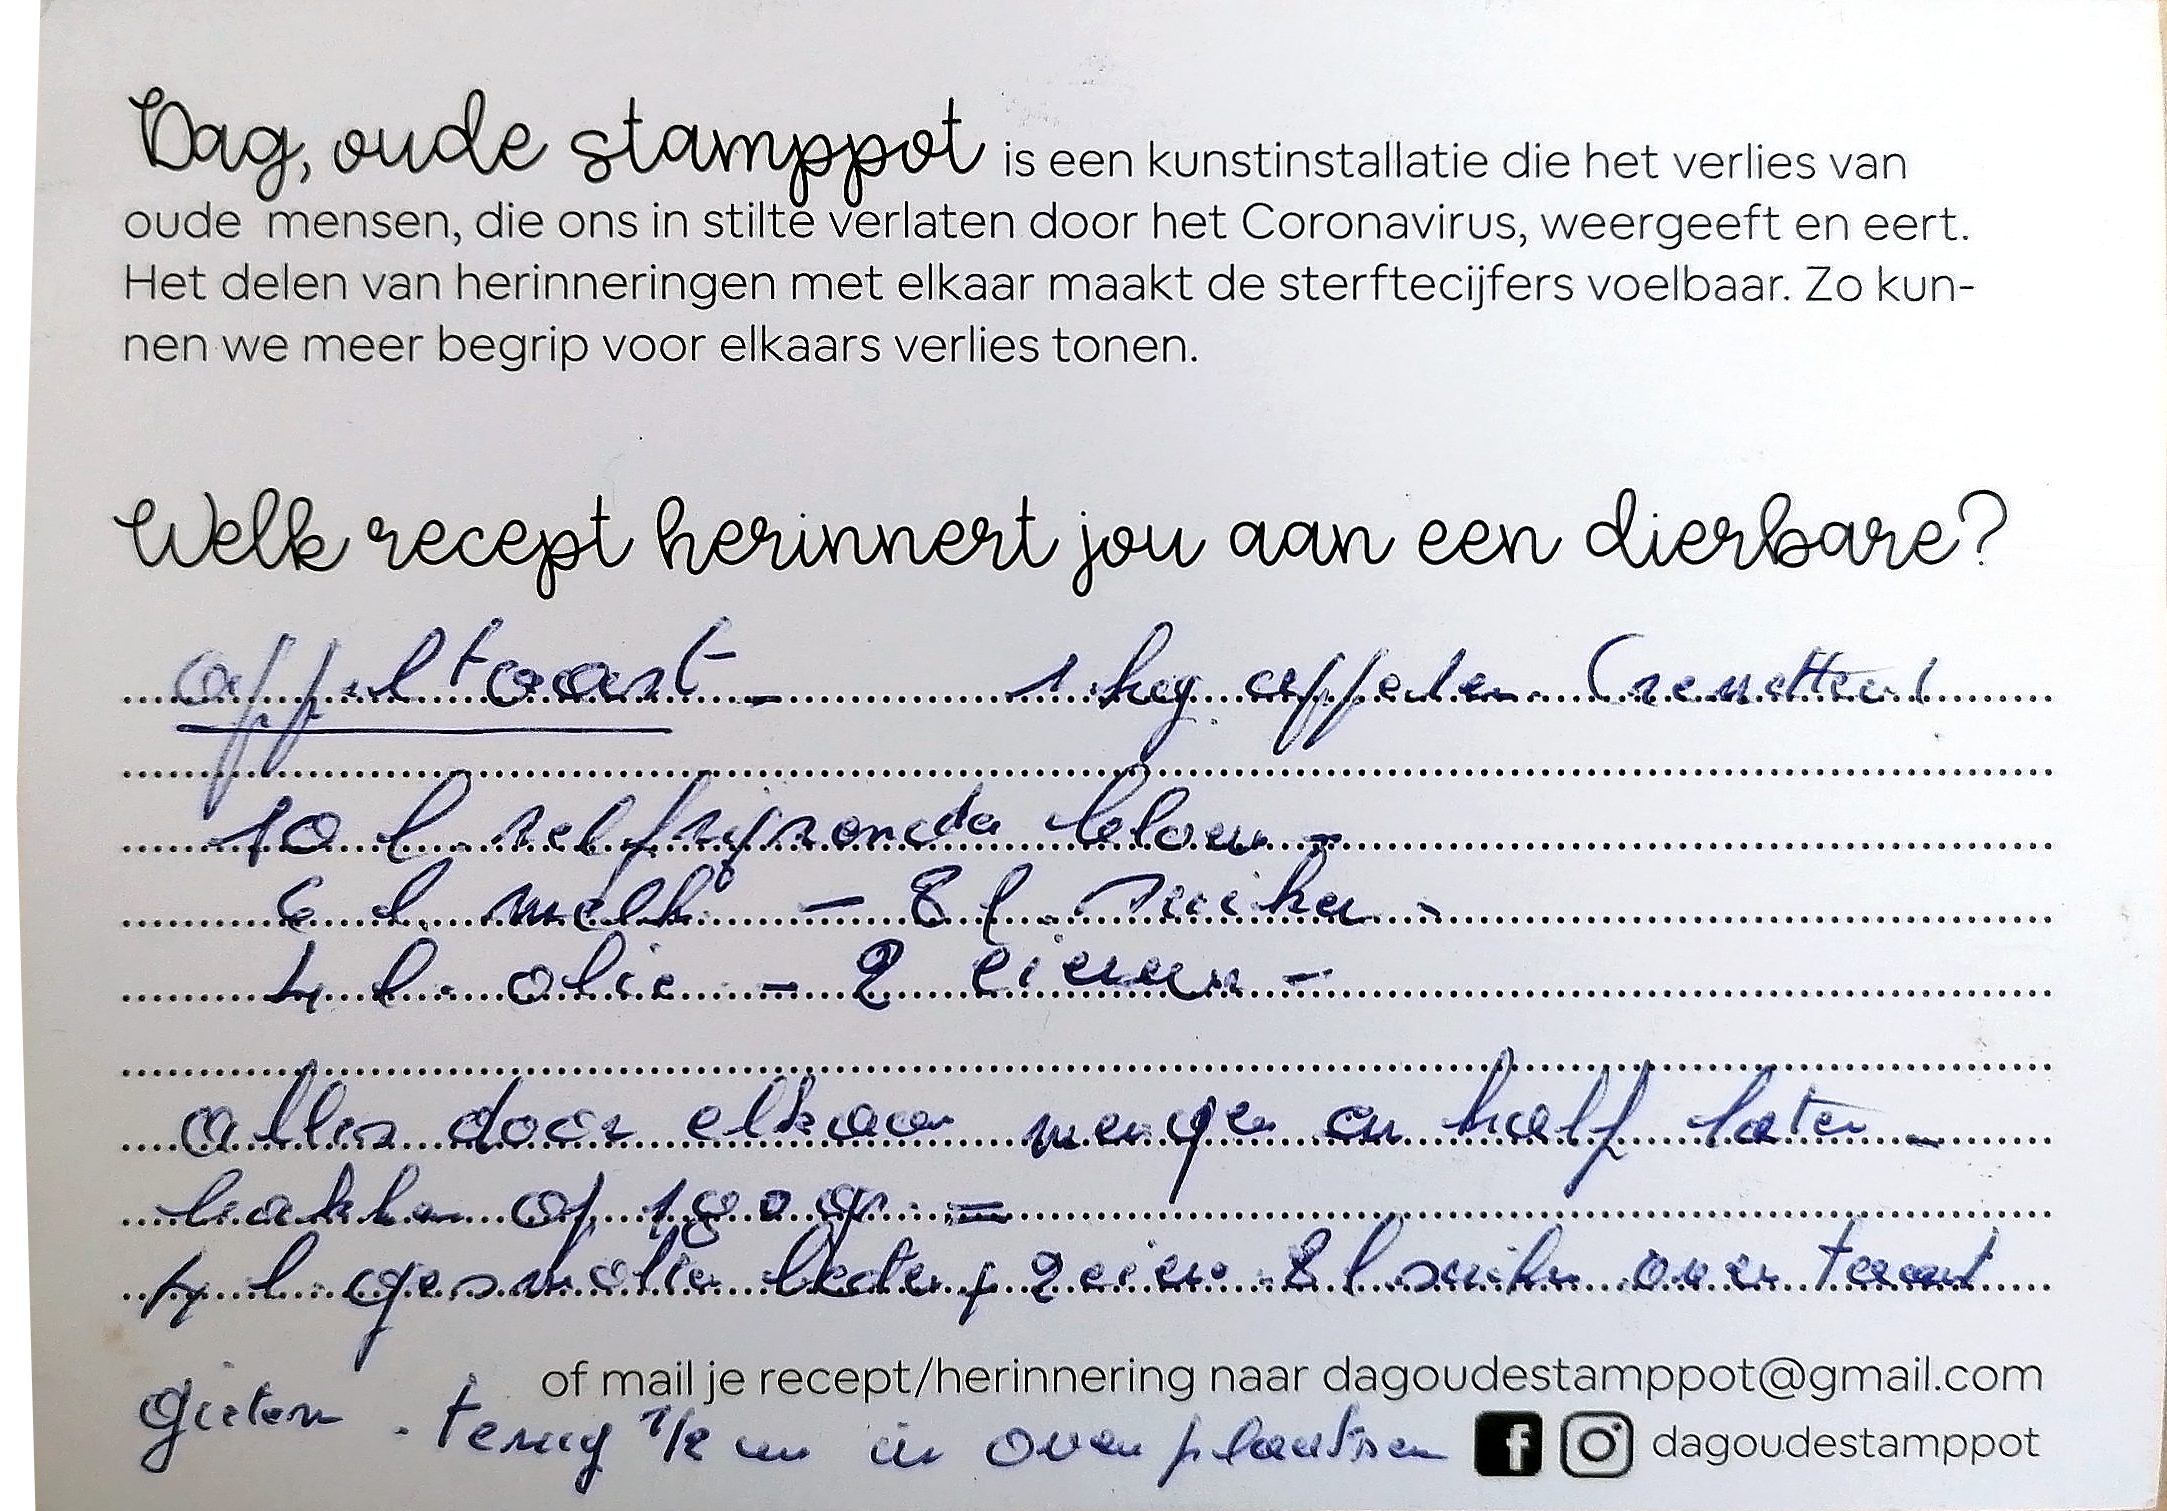 Dag, oude stamppot is een kunstinstallatie die het verlies van
oude mensen, die ons in stilte verlaten door het Coronavirus, weergeeft en eert.
Het delen van herinneringen met elkaar maakt de sterftecijfers voelbaar. Zo kun-
nen we meer begrip voor elkaars verlies tonen.
Welk recept herinnert jou aan een dierbare?
appeltaart - 1 kg appelen (renetten)
10 l. zelfrijzende bloem -
6 l. melk - 8 l. suiker -
4 l. olie - 2 eieren -
alles door elkaar mengen en half laten -
bakken op 180 gr. =
4 l. gesmolten boter + 2 eieren 8 l suiker over taart
gieten. terug 1/2 uur in oven plaatsen
of mail je recept/herinnering naar dagoudestamppot@gmail.com
dagoudestamppot